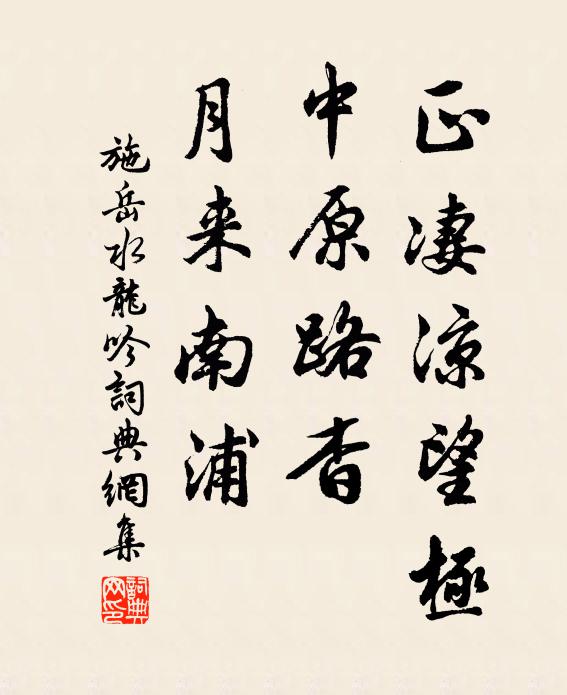 正凄凉望極
中原路杳
月来南浦
施岳水龍吟詞典網集
詞典网印